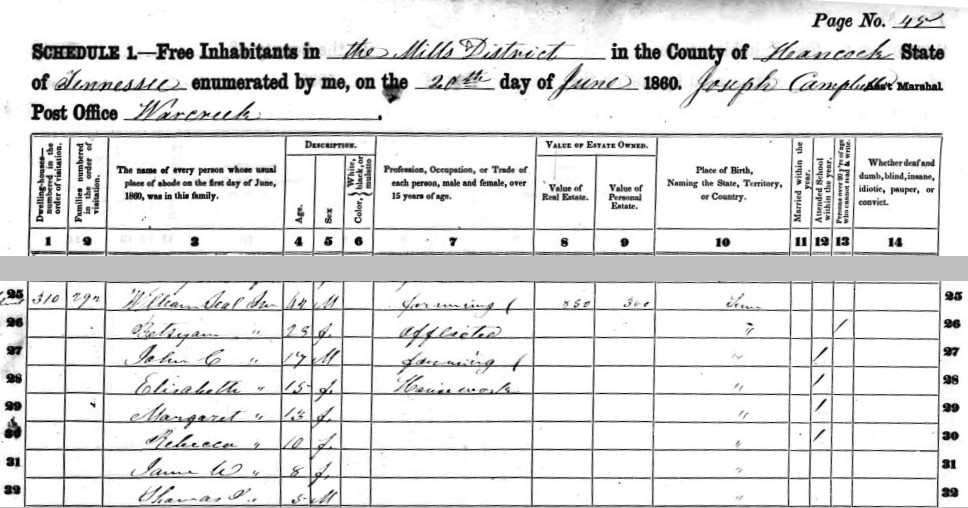 Page No. 45
SCHEDULE 1.—Free Inhabitants in the Mills District in the County of Hancock State
of Tennessee enumerated by me, on the 20th day of June 1860. Joseph Campbell Ass't Marshal
Post Office Warcreek.
DESCRIPTION. VALUE OF ESTATE OWNED.
Dwelling-houses—numbered in the order of visitation. Families numbered in the order of visitation. The name of every person whose usual place of abode on the first day of June, 1860, was in this family. Age. Sex Color, { White, black, or mulatto Profession, Occupation, or Trade of each person, male and female, over 15 years of age. Value of Real Estate. Value of Personal Estate. Place of Birth, Naming the State, Territory, or Country. Married within the year. Attended School within the year. Persons over 20 y'rs of age who cannot read & write. Whether deaf and dumb, blind, insane, idiotic, pauper, or convict.
1 2 3 4 5 6 7 8 9 10 11 12 13 14
25 310 292 William Seal 64 M farming 850 300 Tenn 25
26 " Betsyann " f. afflicted " / 26
27 John C " 17 M farming " / 27
28 Elisabeth " 15 f. Housework " / 28
29 " Margaret " 13 f. " / 29
30 Rebecca " 10 f. " / 30
31 W " 8 f. " 31
32 Thomas " 5 M " 32